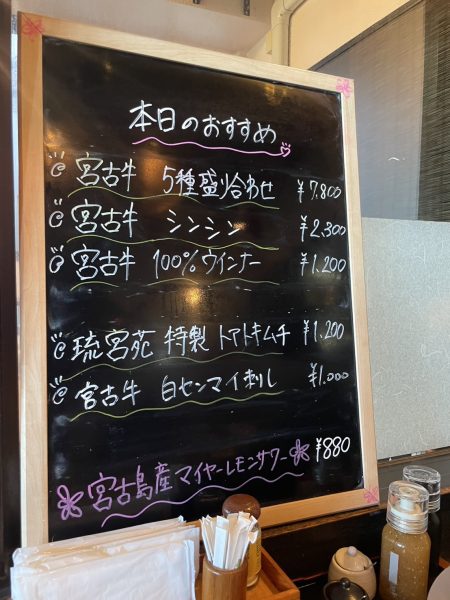 本日のおすすめ
宮古牛 5種盛り合わせ ¥7,800
宮古牛 シンシン ¥2,300
宮古牛 100%ウインナー ¥1,200
琉宮苑 特製 トマトキムチ ¥1,200
宮古牛 白センマイ刺し ¥1,000
宮古島産マイヤーレモンサワー ¥880